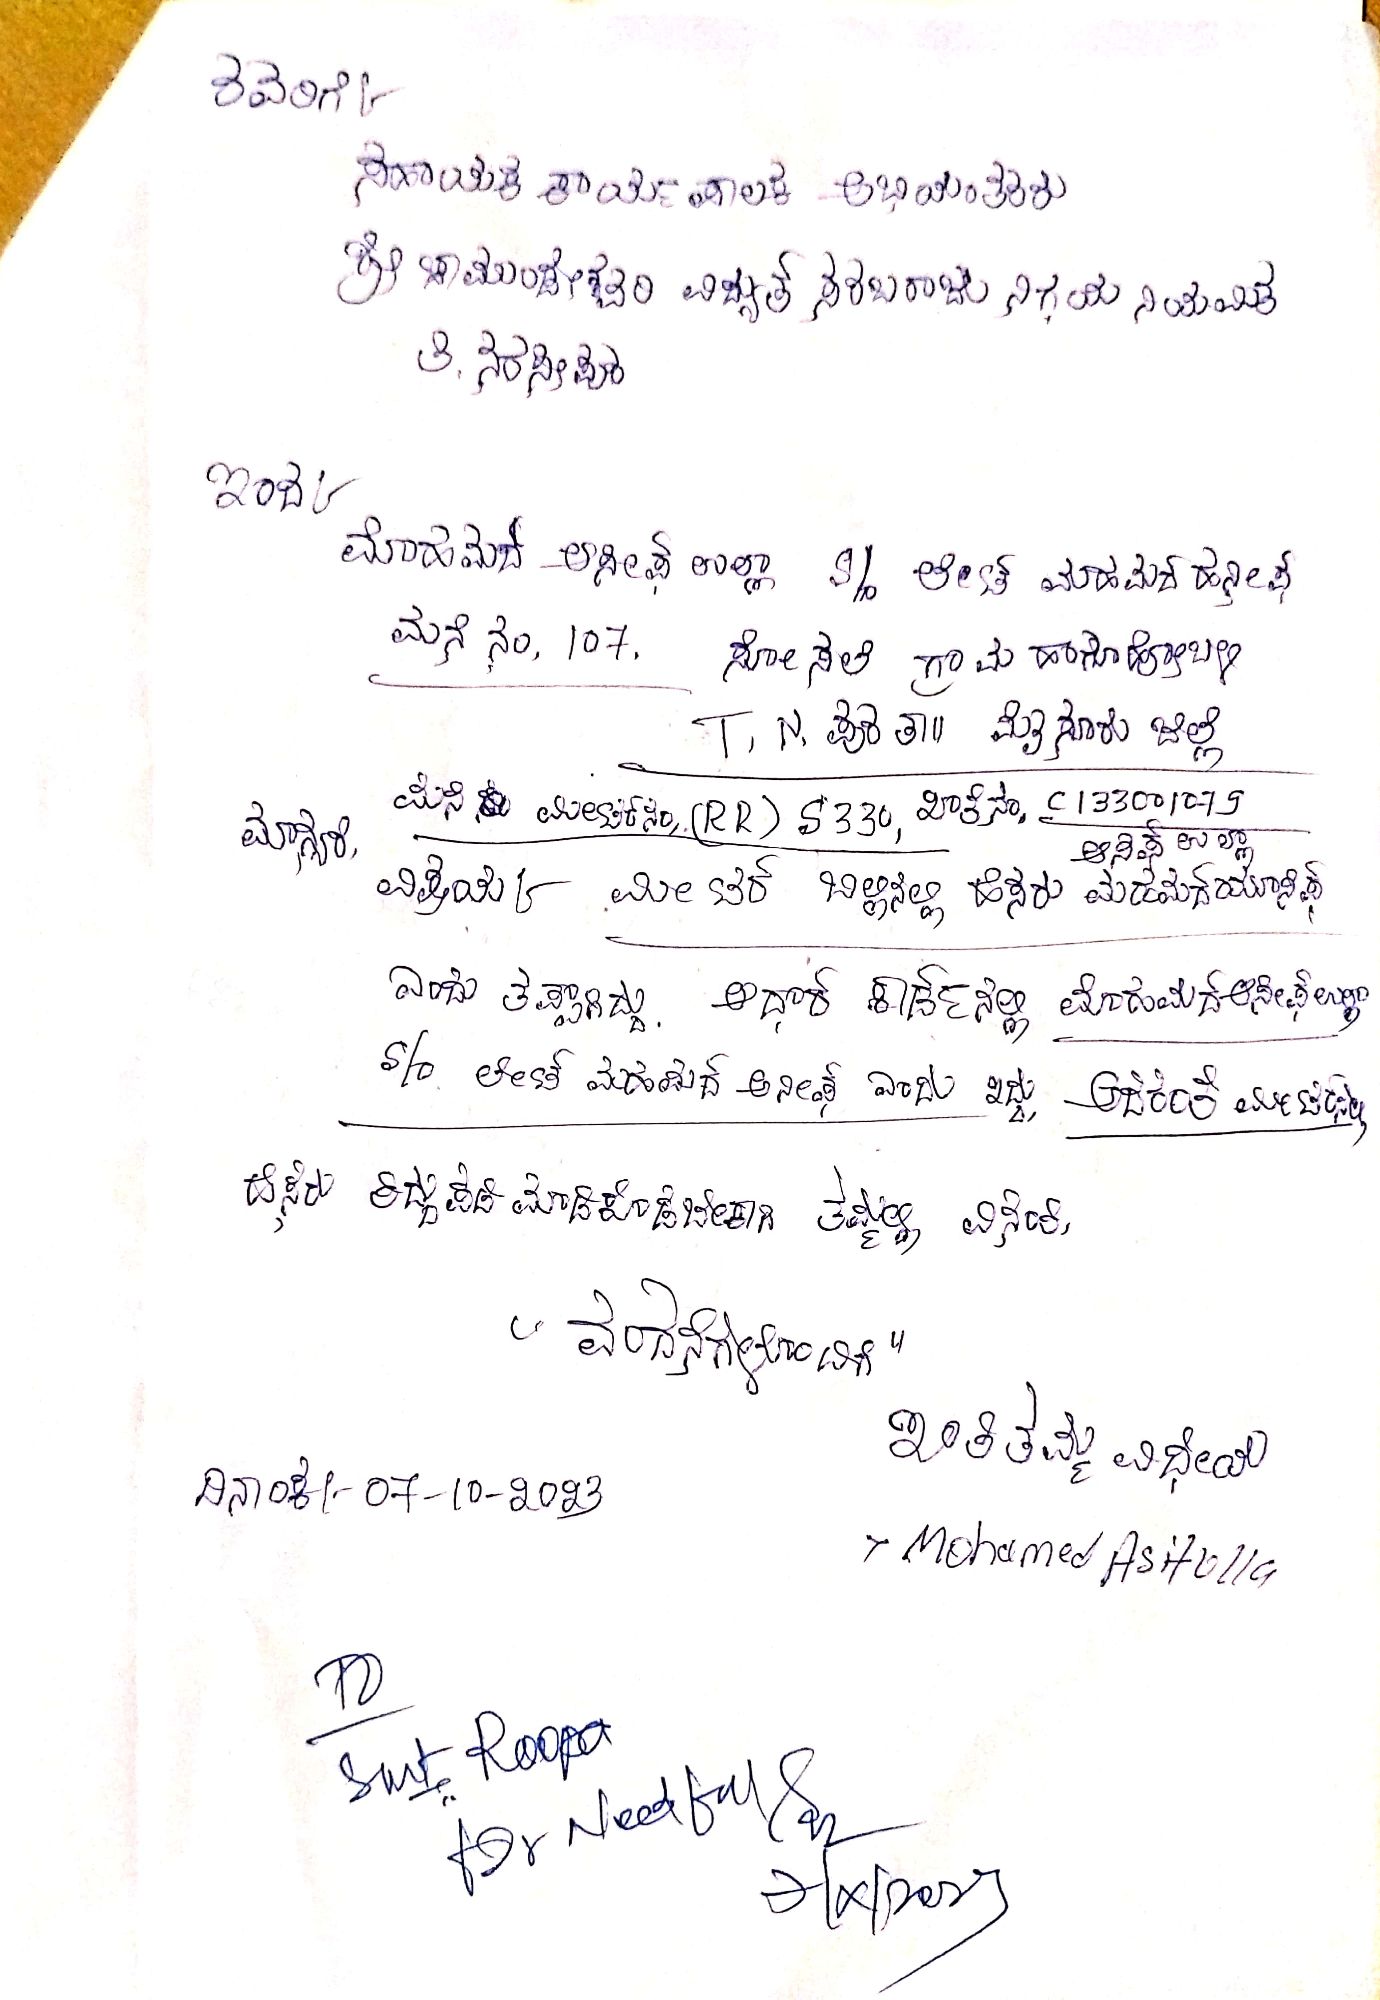 ರವರಿಗೆ:-
ಸಹಾಯಕ ಕಾರ್ಯಪಾಲಕ ಅಭಿಯಂತರರು
ಶ್ರೀ ಚಾಮುಂಡೇಶ್ವರಿ ವಿದ್ಯುತ್ ಸರಬರಾಜು ನಿಗಮ ನಿಯಮಿತ
ತಿ. ನರಸೀಪುರ
ಇಂದ:-
ಮೊಹಮದ್ ಆಸೀಫ್ ಉಲ್ಲಾ S/o ಲೇಟ್ ಮಹಮದ್ ಹನೀಫ್
ಮನೆ ನಂ. 107. ಸೋಸಲೆ ಗ್ರಾಮ ಹಾಗೂ ಹೋಬಳಿ
T. N. ಪುರ ತಾ|| ಮೈಸೂರು ಜಿಲ್ಲೆ
ಮನೆ ಮೀಟರ್ ನಂ, (RR) S330, ಖಾತೆ ನಂ, C133001075
ಮಾನ್ಯರೆ,
ಆಸಿಫ್ ಉಲ್ಲಾ
ವಿಷಯ:- ಮೀಟರ್ ಬಿಲ್ಲಿನಲ್ಲಿ ಹೆಸರು ಮಹಮದ್ ಯೂಸಿಫ್
ಎಂದು ತಪ್ಪಾಗಿದ್ದು. ಆಧಾರ್ ಕಾರ್ಡ್‌ನಲ್ಲಿ ಮೊಹಮದ್ ಆಸೀಫ್ ಉಲ್ಲಾ
S/o ಲೇಟ್ ಮಹಮದ್ ಅನೀಫ್ ಎಂದು ಇದ್ದು, ಅದರಂತೆ ಮೀಟರ್‌ನಲ್ಲಿ
ಹೆಸರು ತಿದ್ದುಪಡಿ ಮಾಡಿಕೊಡಬೇಕಾಗಿ ತಮ್ಮಲ್ಲಿ ವಿನಂತಿ,
" ವಂದನೆಗಳೊಂದಿಗೆ "
ಇಂತಿ ತಮ್ಮ ವಿಧೇಯ
ದಿನಾಂಕ:- 07-10-2023
x Mohamed Asifulla
TO
Smt. Roopa
for Needful